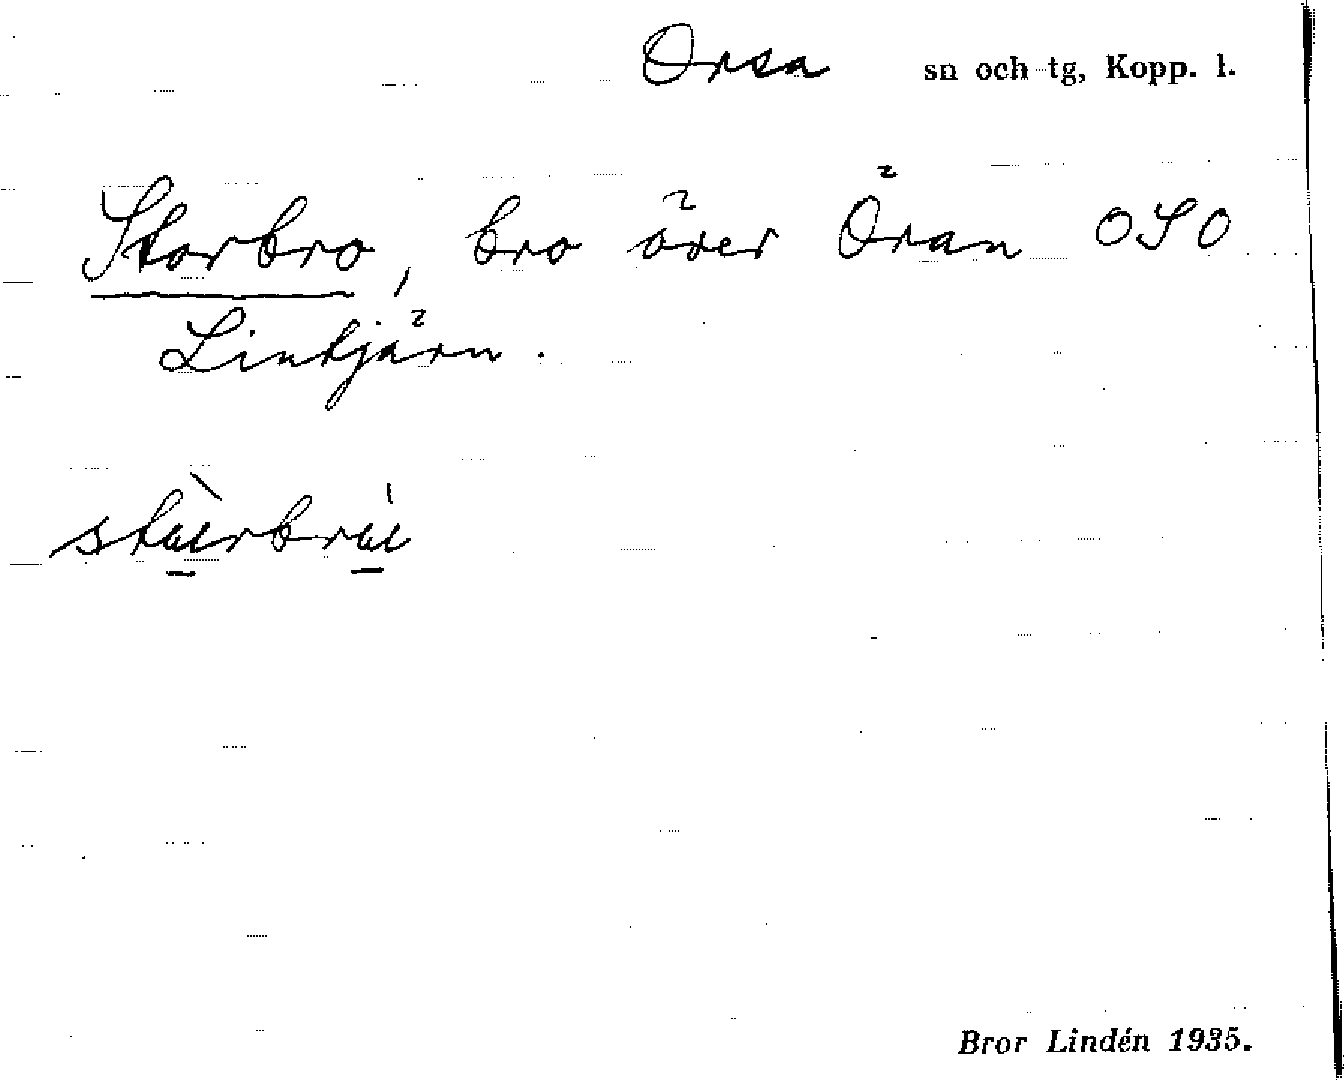 Orsa sn och tg, Kopp. l.
Storbro, bro över Öran OSO
Lintjärn.
stùerbrúe
Bror Lindén 1935.